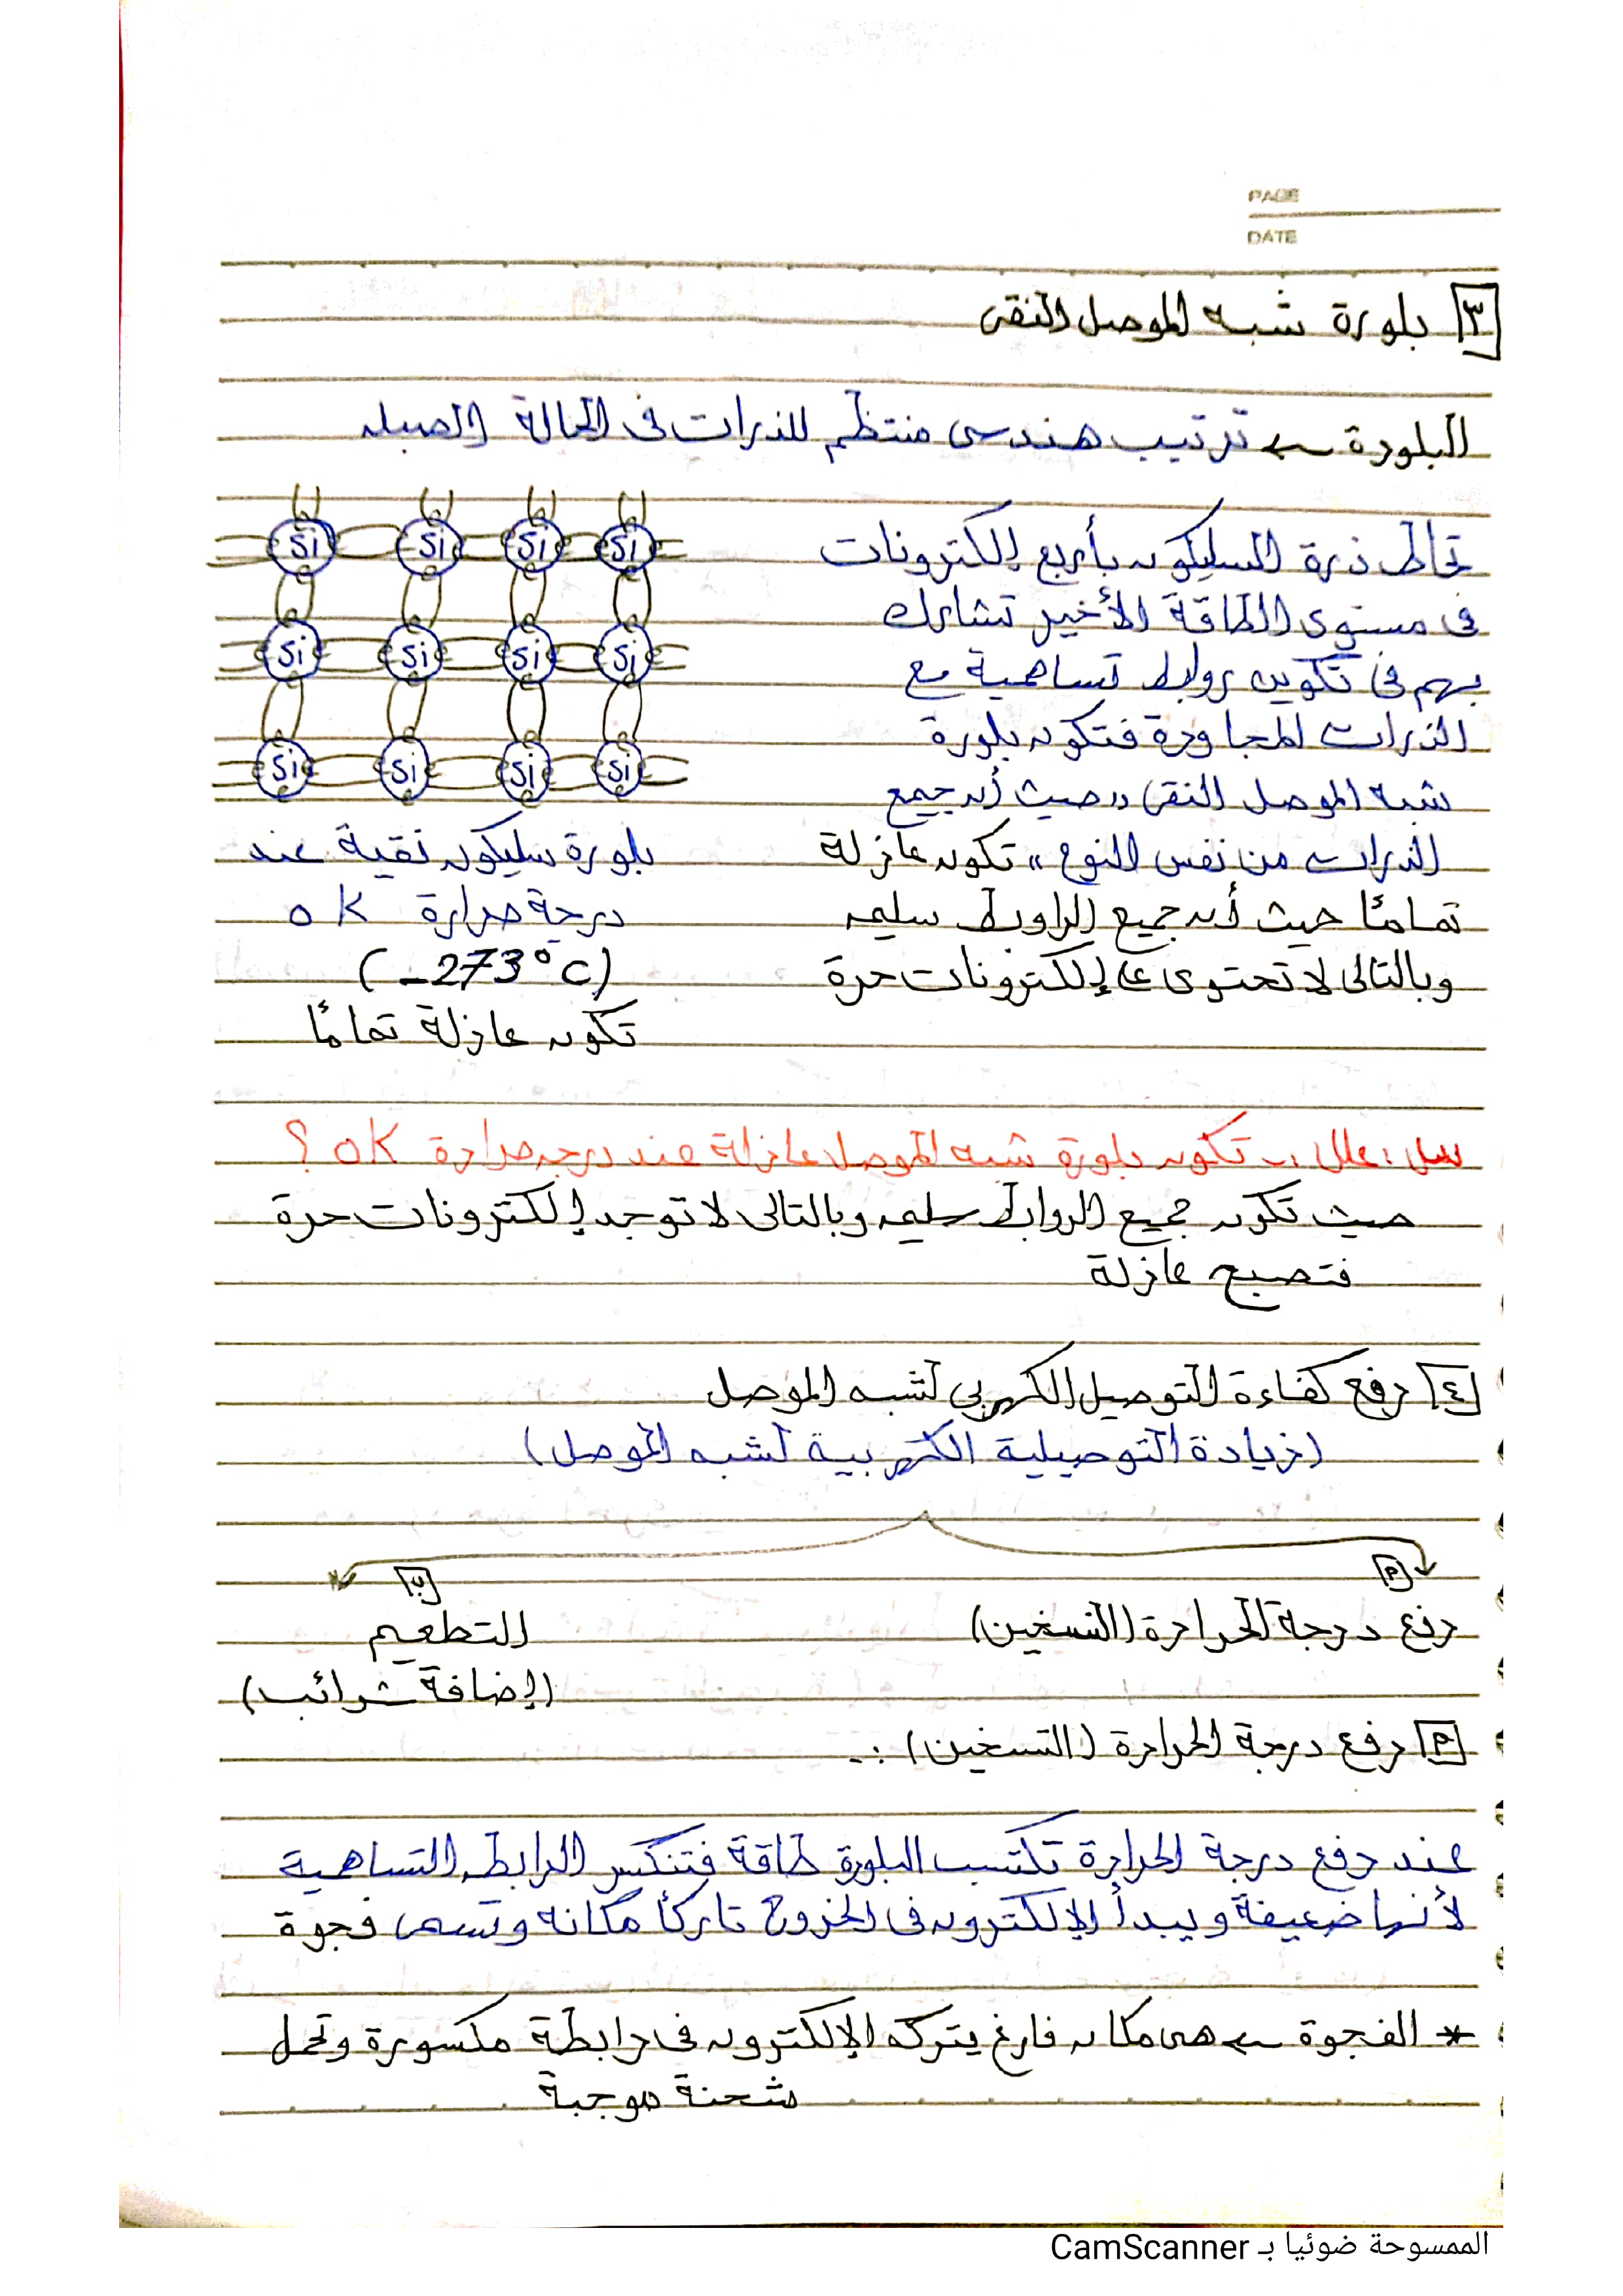 PAGE
DATE
٣ بلورة شبه الموصل النقى
البلورة ← ترتيب هندسى منتظم للذرات فى الحالة الصلبه
Si Si Si Si
Si Si Si Si
Si Si Si Si
تحاط ذرة السليكون بأربع إلكترونات
فى مستوى الطاقة الأخير تشارك
بهم فى تكوين روابط تساهمية مع
الذرات المجاورة فتكون بلورة
شبه الموصل النقى "حيث أن جميع
الذرات من نفس النوع" تكون عازلة
تمامًا حيث أن جميع الراوبط سليمه
وبالتالى لا تحتوى على إلكترونات حرة
بلورة سليكون نقية عند
درجة حرارة 0 K
(-273°C)
تكون عازلة تمامًا
س: علل :- تكون بلورة شبه الموصل عازلة عند درجه حرارة 0K ؟
حيث تكون جميع الروابط سليمه وبالتالى لا توجد إلكترونات حرة
فتصبح عازلة
٤ رفع كفاءة التوصيل الكهربي لشبه الموصل
(زيادة التوصيلية الكهربية لشبه الموصل)
أ
رفع درجة الحرارة (التسخين)
ب
التطعيم
(إضافة شوائب)
أ رفع درجة الحرارة (التسخين) :-
عند رفع درجة الحرارة تكتسب البلورة طاقة فتنكسر الرابطه التساهمية
لأنها ضعيفة ويبدأ الإلكترون فى الخروج تاركًا مكانه وتسمى فجوة
* الفجوة ← هى مكان فارغ يتركه الإلكترون فى رابطة مكسورة وتحمل
شحنة موجبة
الممسوحة ضوئيا بـ CamScanner